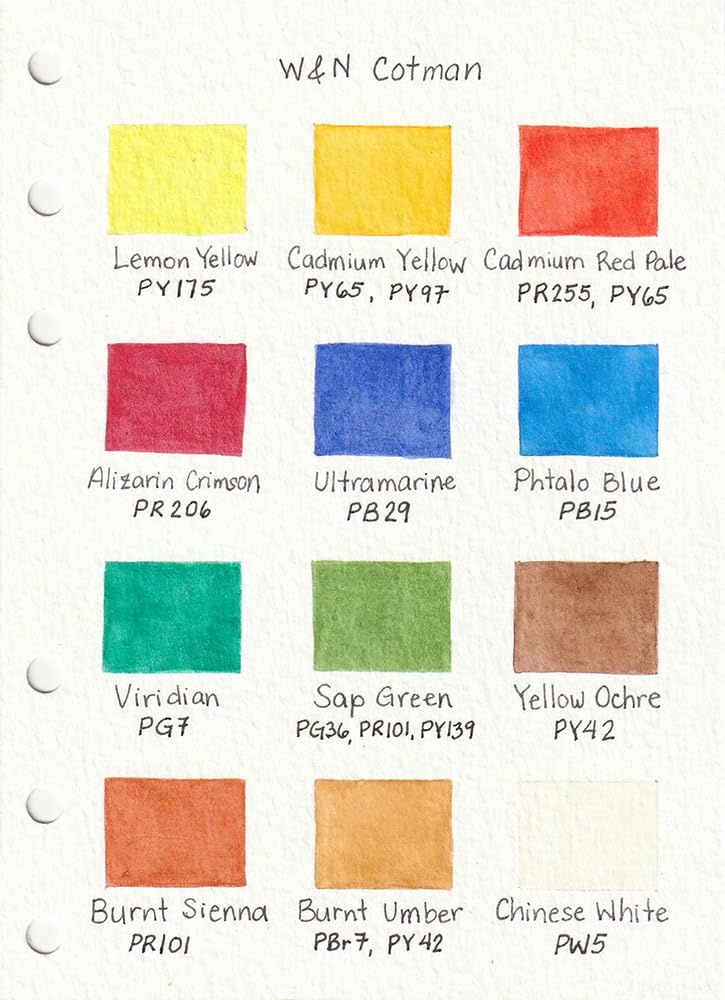 W&N Cotman
Lemon Yellow
PY175
Cadmium Yellow
PY65, PY97
Cadmium Red Pale
PR255, PY65
Alizarin Crimson
PR206
Ultramarine
PB29
Phtalo Blue
PB15
Viridian
PG7
Sap Green
PG36, PR101, PY139
Yellow Ochre
PY42
Burnt Sienna
PR101
Burnt Umber
PBr7, PY42
Chinese White
PW5